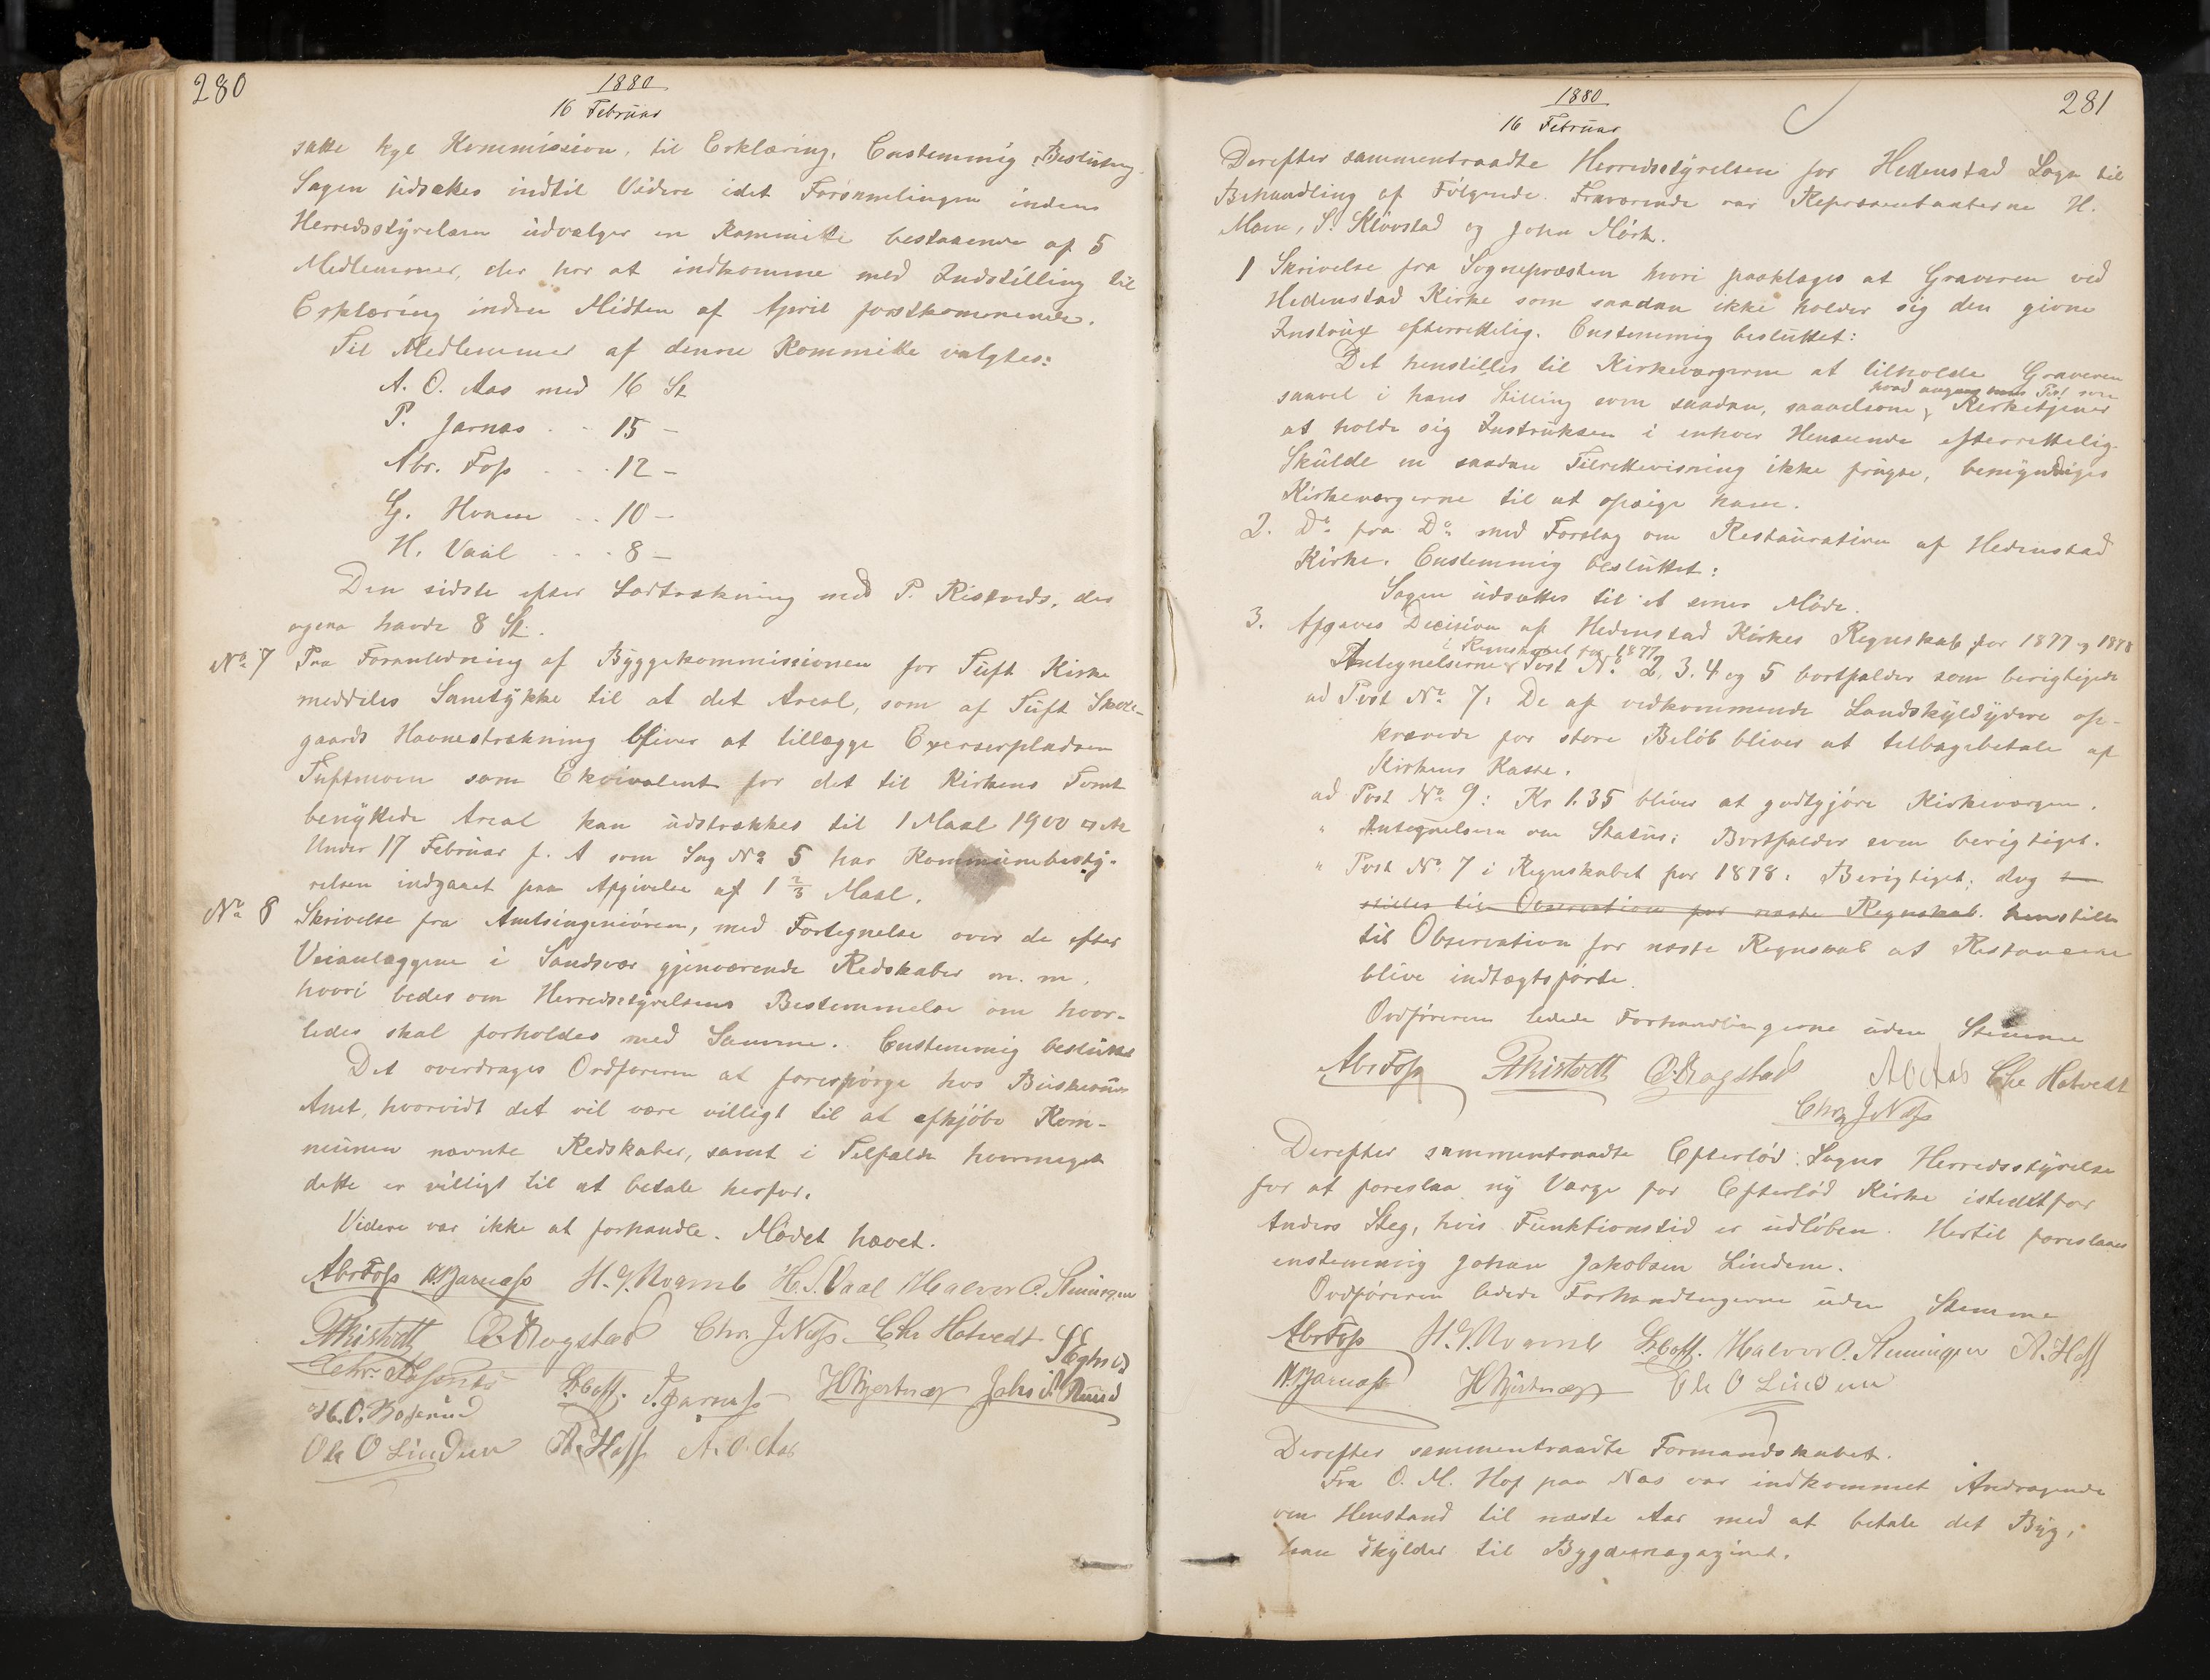 280
1880
16 Februar
satte kgl Kommission, til Erklæring. Enstemmig Beslutning
Sagen udsættes indtil Videre idet Forsamlingen indens
Herredsstyrelsen udvælger en Kommitte bestaaende af 5
Medlemmer, der har at indkomme med Indstilling til
Erklæring inden Midten af April førstkommende.
Til Medlemmer af denne Kommitte valgtes:
A. O. Aas med 16 St
P. Jarnæs - - 15 -
Abr. Foss - - - 12 -
G. Hvaem - - 10 -
H. Vaal - - - 8 -
Den sidste efter Lodtrækning med P. Ristvedt, der
ogsaa havde 8 St.
No 7 Paa Foranledning af Byggekommissionen for Tuft Kirke
meddeles Samtykke til at det Areal, som af Tuft Skole-
gaards Havnestrækning bliver at tillægge Exerserpladsen
Tuftmoen som Ekvivalent for det til Kirkens Tomt
benyttede Areal kan udstrækkes til 1 Maal 1900 □ Al
Under 17 Februar f. A som Sag No 5 har Kommunebesty-
relsen indgaaet paa Afgivelse af 1 2/3 Maal.
No 8 Skrivelse fra Amtsingeniøren, med Fortegnelse over de efter
Veianlæggene i Sandsvær gjenværende Redskaber m. m.
hvori bedes om Herredsstyrelsens Bestemmelse om hvor-
ledes skal forholdes med Samme. Enstemmig besluttet
Det overdrages Ordføreren at forespørge hos Buskeruds
Amt, hvorvidt det vil være villigt til at afkjøbe Kom-
munen nævnte Redskaber, samt i Tilfælde hvormeget
dette er villigt til at betale herfor.
Videre var ikke at forhandle. Mødet hævet.
Abr Foss P. Jarnæss H. J. Kvamb H. S. Vaal Halvor O. Stemingen
PRistvedt O. Rogstad Chr. J Næss Chr Hotvedt
H. O. Boserud L. Hoff. T. Jarnæss H Bjertnæs John A Ruud
Ole O Linduen A. Hoff A. O. Aas
281
1880
16 Februar
Derefter sammentraadte Herredsstyrelsen for Hedenstad Sogn til
Behandling af Følgende. Fraværende var Repræsentanterne H.
Moen, S. Kløvstad og John Mørk.
1 Skrivelse fra Sognepræsten hvori paaklages at Graveren ved
Hedenstad Kirke som saadan ikke holder sig den givne
Instrux efterrettelig. Enstemmig besluttet:
Det henstilles til Kirkeværgerne at tilholde Graveren
hvad angaar hans Tid som
saavel i hans Stilling som saadan, saavelsom Kirketjener
at holde sig Instruksen i enhver Henseende efterrettelig.
Skulde en saadan Tilrettevisning ikke frugte, bemyndiges
Kirkeværgerne til at opsige ham.
2. Do fra Do med Forslag om Restauration af Hedenstad
Kirke. Enstemmig besluttet:
Sagen udsættes til et senere Møde.
3. Afgaves Decision af Hedenstad Kirkes Regnskab for 1877 og 1878
i Regnskabet for 1877
Antegnelserne Post No 2, 3. 4 og 5 bortfalder som berigtigede
ad Post No 7: De af vedkommende Landskyldydere op-
krævede for store Beløb bliver at tilbagebetale af
Kirkens Kasse.
ad Post No 9: Kr 1.35 bliver at godtgjøre Kirkeværgen.
" Antegnelsen om Status: Bortfalder som berigtiget.
" Post No 7 i Regnskabet for 1878: Berigtiget; dog
stilles til Observation for næste Regnskab. henstilles
til Observation for næste Regnskab at Restancerne
blive indtægtsførte.
Ordføreren ledede Forhandlingerne uden Stemme
Abr Foss PRistvedt O. Rogstad A O Aas Chr Hotvedt
Chr J Næss
Derefter sammentraadte Efteløt Sogns Herredsstyrelse
for at foreslaa ny Værge for Efteløt Kirke istedetfor
Anders Steg, hvis Funktionstid er udløben. Hertil foreslaaes
enstemmig Johan Jakobsen Lindem.
Ordføreren ledede Forhandlingerne uden Stemme
Abr Foss H. J. Kvamb L. Hoff. Halvor O. Stemingen A. Hoff
P. Jarnæss H Bjertnæs Ole O Linduen
Derefter sammentraadte Formandskabet.
Fra O. M. Hof paa Næs var indkommet Andragende
om Henstand til næste Aar med at betale det Byg,
han skylder til Bygdemagazinet.